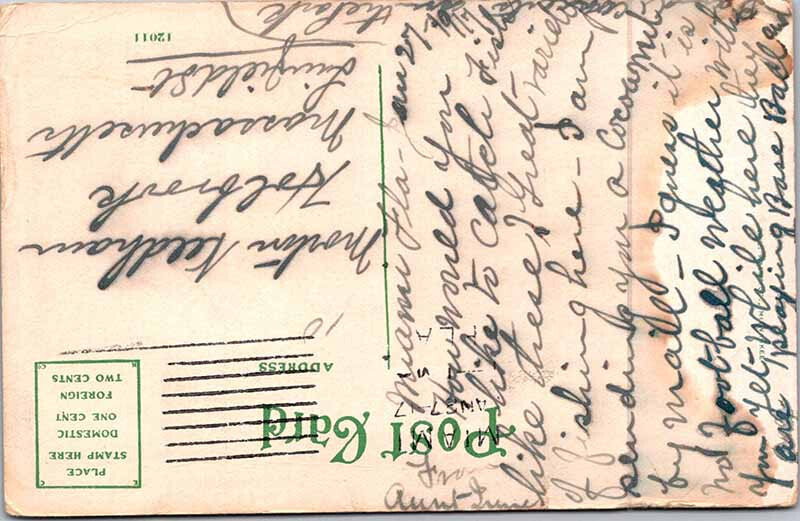 Post Card
ADDRESS
PLACE
STAMP HERE
DOMESTIC
ONE CENT
FOREIGN
TWO CENTS
MIAMI
FLA
12011
Morton Needham
Holbrook
Massachusetts
Linfield St
Miami Fla - Jan 27
How would you
like to catch fish
like these? Great variety
of fishing here - I am
sending you a cocoanut
by mail - I guess it is
not foot-ball weather with
you yet - While here they
are playing Base Ball
in the Park
From
Aunt Irene